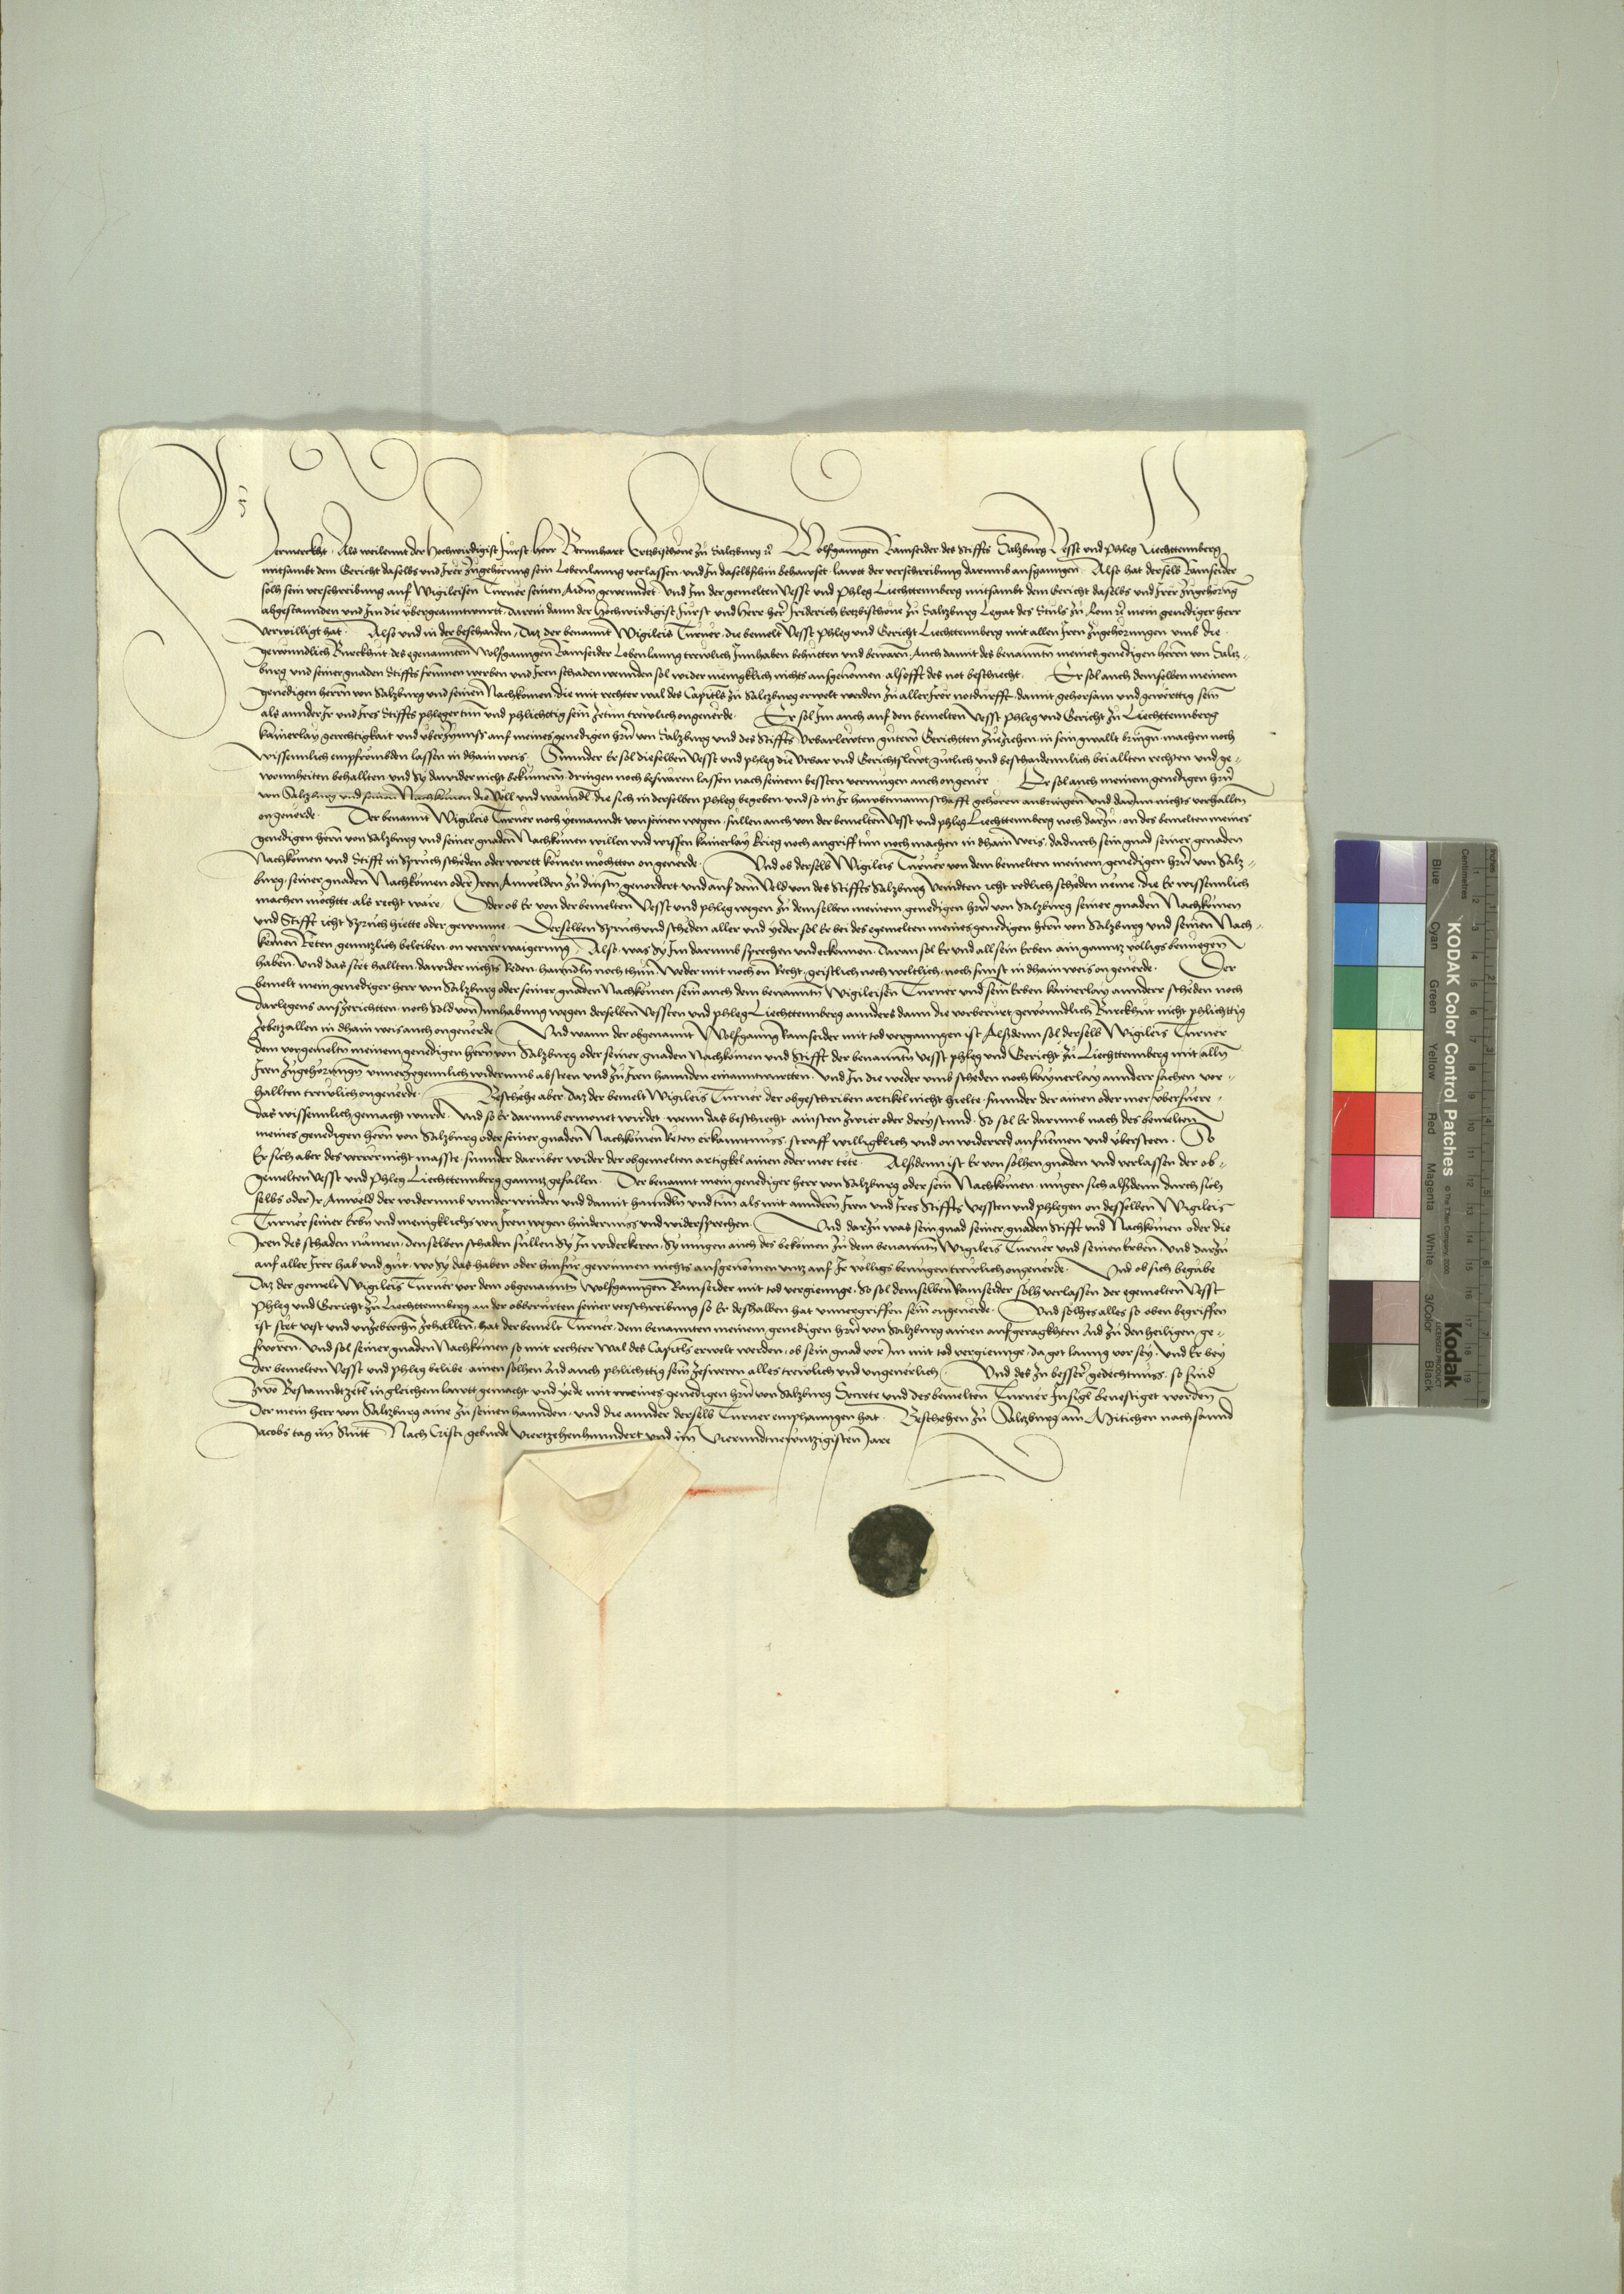 Vermerckht. Als weilennt der Hochwirdigist Fürst Herr Bernnhart Ertzbischoue zu Saltzburg etc. Wolfganngen Ramseider des Stiffts Salzburg Vesst und phleg Liechttennberg
mitsambt dem Gericht daselbs und Irer Zugehorung sein Lebenlanng verlassen. und In daselbshin behawset. lawtt der verschreibung darumb ausganngen. Also hat derselb Ramseider
solh sein verschreibung auf Wigileisen Turner seinen Aidm gewenndet. Und Im der gemelten Vesst und phleg Liechttennberg mitsambt dem Gericht daselbs und Irer Zugehorung
abgestannden und Im die übergeanntwurtt. darein dann der Hochwirdigist Fürst und Herr her Friderich Ertzbischoue zu Saltzburg Legat des Stuls zu Rom etc. mein genediger herr
verwilligt hat. Also und in der bescheiden, Daz der benannt Wigileis Turner, die bemelt Vesst phleg und Gericht Liechttennberg mit allen Iren Zugehorungen umb die
gewonndlich Burckhut des egenannten Wolfganngen Ramseider Lebenlanng trewlich Innhaben behutten und bewarn. Auch damit des benanntn meines genedigen herrn von Saltz-
burg und seiner gnaden Stiffts frumen werben und Iren schaden wennden sol wider meniklich nichts ausgenomen. alsofft des not beschiecht. Er sol auch demselben meinem
genedigen herrn von Salzburg und seinen Nachkomen, die mit rechter wal des Capitls zu Saltzburg erwelt werden zu aller Irer notdurfft, damit gehorsam und gewerttig sein
als annder Ir und Ires Stiffts phleger tun und phlichttig sein zetun trewlich ongeuerde. Er sol Im auch auf den bemelten Vesst phleg und Gericht zu Liechttennberg
kainerlay gerechtigkait und überzynnss auf meines genedigen herrn von Salzburg und des Stiffts Urbarlewten gütern Gerichten zueziehen, in sein gwallt bringn, machen noch
wissennlich empfrombden lassen in dhain weis. Sunnder Er sol dieselben Vesst und phleg die Urbar und Gerichtslewt gütlich und beschaidennlich bei allten rechten und ge-
wonnheiten behallten und Sy dawider nicht bekümern, dringen noch beswaren lassen nach seinem bessten vermugen auch ongeuer. Er sol auch meinem genedigen herrn
von Salzburg und seinen Nachkomen die Vell und wanndl die sich in derselben phleg begeben und so in Ir hawbtmannschafft gehoren anbringen und darinn nichts verhallten
ongeuerde. Der benannt Wigileis Turner noch yemanndt von seinen wegen, sullen auch von der bemelten Vesst und phleg Liechttennberg noch darzu, on des bemelten meines
genedigen herrn von Salzburg und seiner gnaden Nachkomen willen und wissen kainerlay krieg noch angriff tun noch machen in dhain weis, dadurch sein gnad seiner genaden
Nachkomen und Stifft in Spruch scheden oder wortt komen mochtten ongeuerde. Und ob derselb Wigileis Turner von dem bemelten meinem genedigen herrn von Salz-
burg, seiner gnaden Nachkomen oder Iren Anwelden zu dinstn geuordert und auf dem Veld von des Stiffts Salzburg veindten icht redlich scheden neme, die Er wissennlich
machen mochtte als recht ware. Oder ob Er von der bemelten Vesst und phleg wegen zu demselben meinem genedigen herrn von Salzburg seiner gnaden Nachkomen
und Stifft icht Spruch hiette oder gewunne. Derselben Spruch und scheden aller und yeder sol Er bei des egemelten meines genedigen herrn von Salzburg und seinen Nach-
komen Reten genntzlich beleiben. on verrer waigerung. Also, was Sy Im darumb sprechen und erkennen. Daran sol Er und all sein Erben ain ganntz vollligs benuegen
haben. Und das stet hallten. dawider nichts Reden, hanndln noch thun Weder mit noch on Recht, geistlich noch weltlich, noch sunst in dhain weis ongeuerde. Der
bemelt mein genediger herr von Salzburg oder seiner gnaden Nachkomen sein auch dem benanntn Wigileisen Turner und sein Erben kainerlay annder scheden noch
darlegens auszerichten, noch Sold von Innhabung wegen derselben Vessten und phleg Liechttennberg annders dann die vorberürt gewonndlich Burckhut nicht phlichttig
zebezallen in dhain weis auch ongeuerde. Und wann der obgenannt Wolfganng Ramseider mit tod verganngen ist. Alsdenn sol derselb Wigileis Turner
dem vorgemeltn meinem genedigen herrn von Salzburg oder seiner gnaden Nachkomen und Stifft der benanntn Vesst phleg und Gericht zu Liechttennberg mit alln
Iren Zugehorungn unuerzogennlich widerumb absteen und zu Iren hannden einanntwurtten. Und In die weder umb scheden noch kaynerlay annder sachen vor-
hallten trewlich ongeuerde. Beschehe aber daz der bemelt Wigileis Turner der obgeschriben artikel nicht hielte. sunnder der ainen oder mer überfuere.
das wissennlich gemacht wurde. Und so Er darumb ermonet wirdet, wenn das beschiecht, ainsten zwier oder dreystund. So sol Er darumb nach des bemelten
meines genedigen herrn von Salzburg oder seiner gnaden Nachkomen Reten erkanntnuss, straff willigklich und on widerred aufnemen und übersteen. Ob
Er sich aber des verrer nicht masste. sunnder darüber wider der obgemelten artigkel ainen oder mer tete. Alsdenn ist Er von solhen gnaden und verlassen der ob-
gemelten Vesst und phleg Liechttennberg ganntz gefallen. Der benannt mein genediger herr von Salzburg oder sein Nachkomen, mugen sich alsdenn durch sich
selbs oder Ir Anweld der widerumb underwinden und damit hanndln und tun als mit anndern Iren und Ires Stiffts Vessten und phlegen on desselben Wigileis
Turner seiner Erbn und meniklichs von Iren wegen hindernuss und widersprechen. Und darzu was sein gnad seiner gnaden Stifft und Nachkomen oder die
Iren des schaden namen, denselben schaden sullen Sy In widerkeren. Sy mugen auch des bekomen zu dem benanntn Wigileis Turner und seinen Erben, Und darzu
auf aller Irer hab und gut, wo Sy das haben oder hinfur gewinnen nichts ausgenomen untz auf Ir volligs benugen trewlich ongeuerde. Und ob sich begabe
Daz der gemelt Wigileis Turner vor dem obgenanntn Wolfganngen Ramseider mit tod vergienge. So sol demselben Ramseider solh verlassen der egemelten Vesst
Phleg und Gericht zu Liechttennberg an der obberurten seiner verschreibung so Er deshalben hat unuergriffen sein ongeuerde. Und solhes alles so oben begriffen
ist stet vest und unzebrochn zehallten, hat der bemelt Turner, dem benannten meinem genedigen herrn von Salzburg ainen aufgeragkhten Aid zu den heiligen ge-
sworen. Und sol seiner gnaden Nachkomen so mit rechter Wal des Capitls erwelt werden, ob sein gnad vor Im mit tod vergienge, da got lanng vor sey, und Er bey
der bemelten Vesst und phleg belibe. ainen solhen Aid auch phlichttig sein zesweren alles trewlich und ungeuerlich. Und des zu besser gedechtnuss, so sind
Zwo Bestanndtzetl in gleichem lawtt gemacht und yede mit vereines genedigen herrn von Salzburg Secrete und des bemelten Turner Insigl beuestiget worden
Der mein herr von Saltzburg aine zu seinen hannden, und die annder derselb Turner emphanngen hat. Beschehen zu Saltzburg am Mitichen nach sannd
Jacobs tag im Snitt Nach Cristi geburde Viertzehenhunndert und im Vierundnewntzigisten Jare